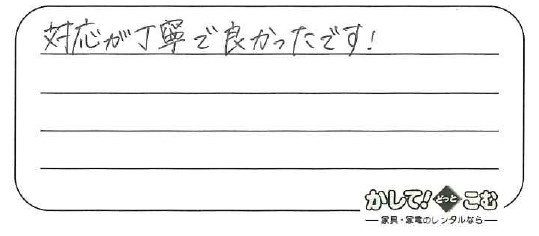 対応が丁寧で良かったです!
かして!どっとこむ
家具・家電のレンタルなら